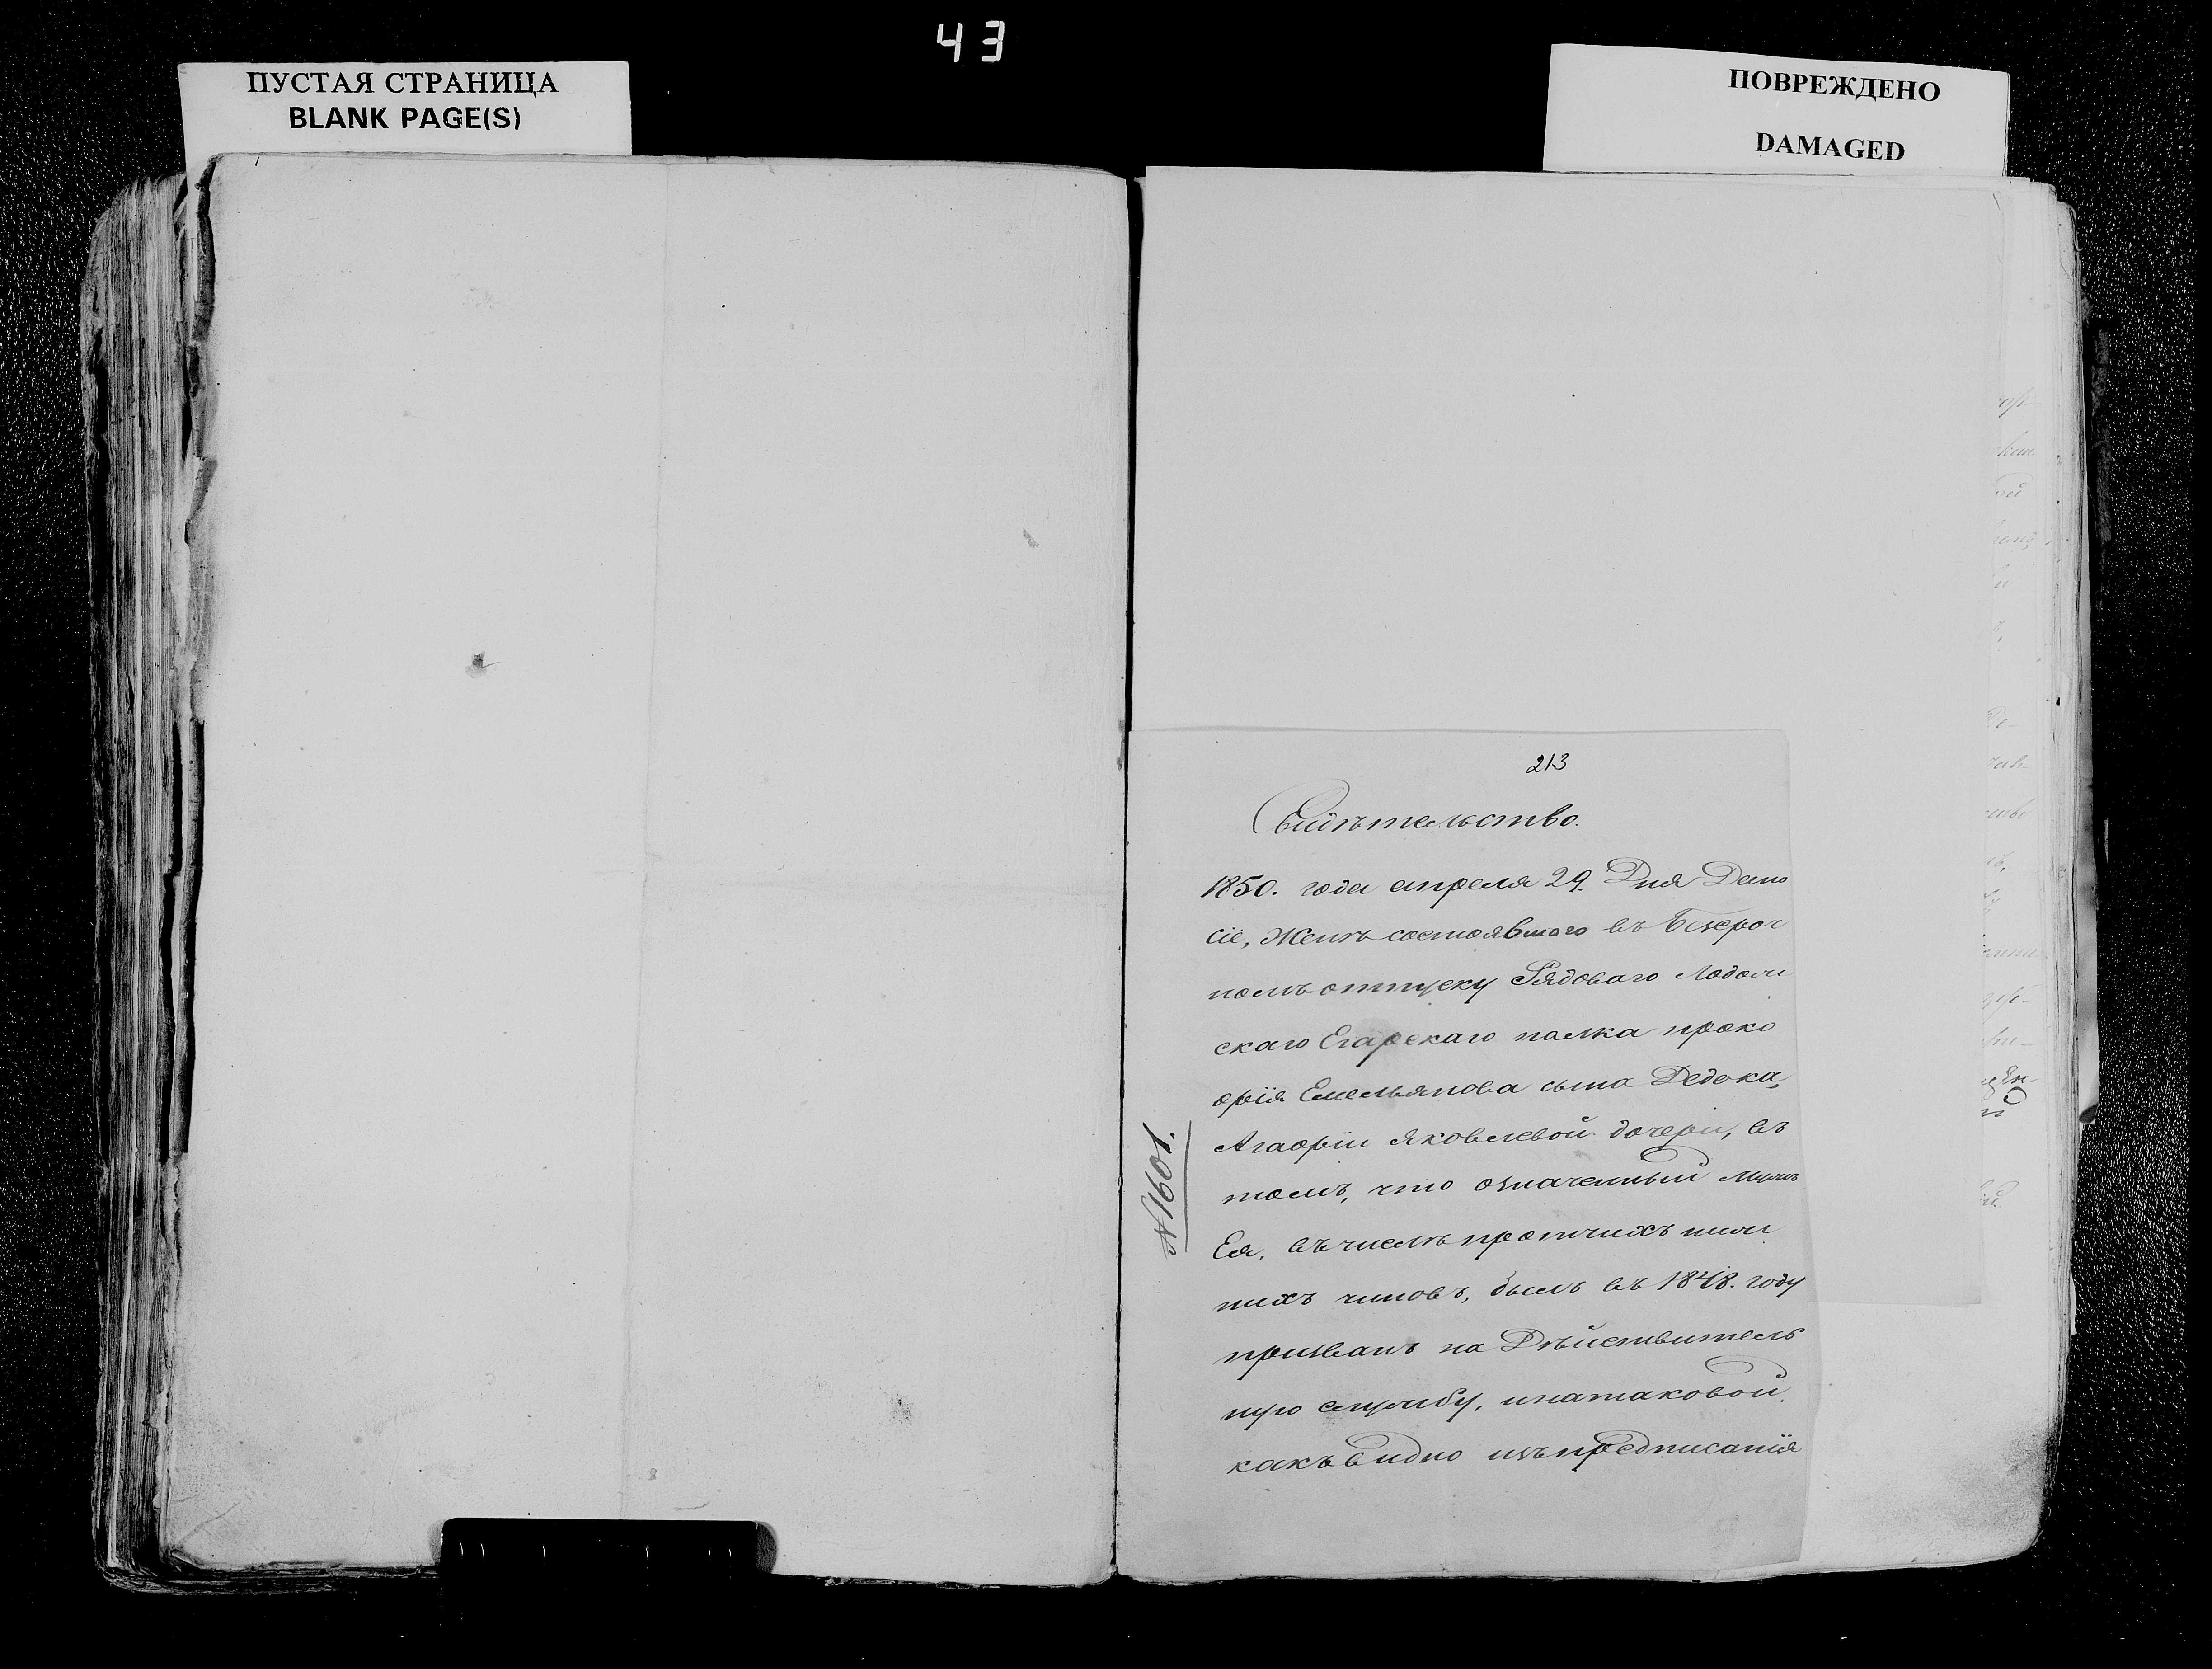 43
ПУСТАЯ СТРАНИЦА
BLANK PAGE(S)
ПОВРЕЖДЕНО
DAMAGED
213
Свидѣтельство.
1850. года апреля 29. Дня Дано
сiе, Женѣ состоявшаго въ безсроч
номъ отпуску Рядоваго Модлин
скаго Егарскаго полка проко
ѳрiя Емельянова сына Дедока,
Агаѳрiи Яковлевой дочери, въ
томъ, что означенный мужъ
Ея, въ числѣ протчихъ ниж
нихъ чиновъ, былъ въ 1848. году
призванъ на Дѣйствитель
ную службу, и на таковой,
какъ видно изъ предписанiя
№ 1601.